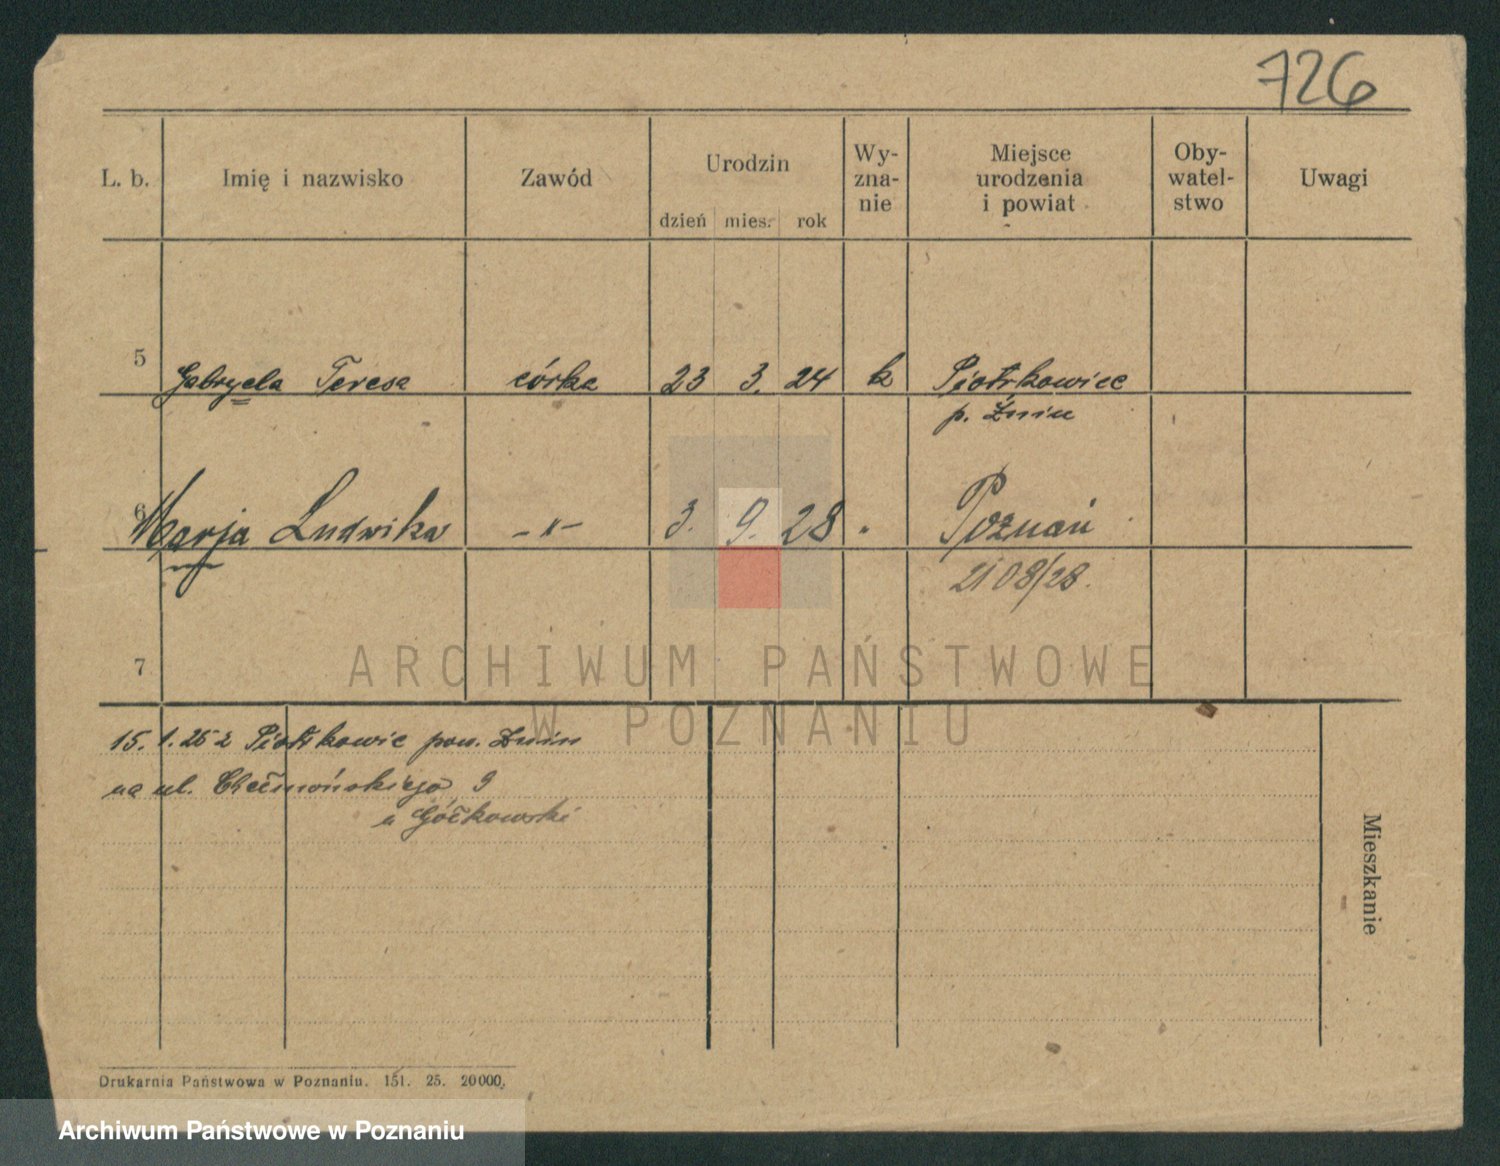 726
L. b. Imię i nazwisko Zawód Urodzin dzień mies. rok Wy-zna-nie Miejsce urodzenia i powiat Oby-watel-stwo Uwagi
5 Gabryela Teresa córka 23 3. 24 k Piotrkowice
p. Żnin
6 Marja Ludwika -"- 3. 9. 28 " Poznań
2108/28.
7
ARCHIWUM PAŃSTWOWE
W POZNANIU
15. 1. 25 z Piotrkowic pow. Żnin
na ul. Chełmońskiego 9
u Górkowski
Mieszkanie
Drukarnia Państwowa w Poznaniu. 151. 25. 20000.
Archiwum Państwowe w Poznaniu